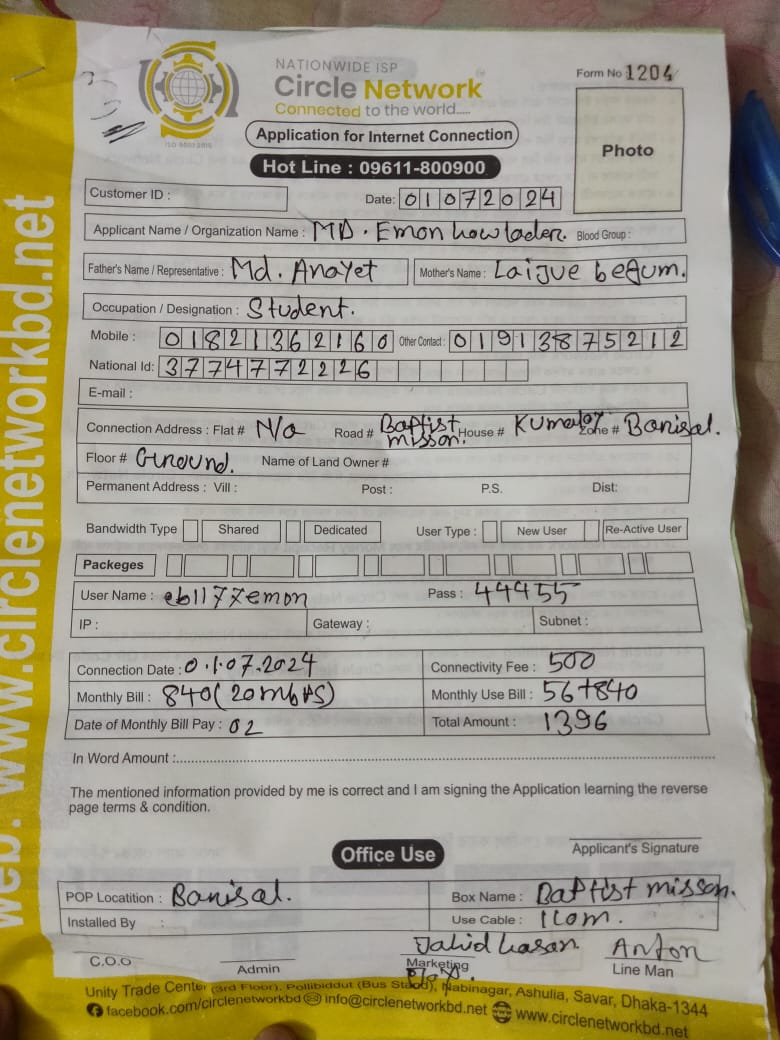 NATIONWIDE ISP
Circle Network
Connected to the world.....
ISO 9001:2015
Form No 1204
Application for Internet Connection
Hot Line : 09611-800900
Photo
Customer ID :
Date: 01072024
Applicant Name / Organization Name : MD. Emon howlader. Blood Group :
Father's Name / Representative : Md. Anayet Mother's Name : Laijue begum.
Occupation / Designation : Student.
Mobile : 01821362160 Other Contact : 01913875212
National Id: 3774772226
E-mail :
Connection Address : Flat # N/a Road # Baptist misson. House # Zone # Barisal.
Floor # Ground. Name of Land Owner #
Permanent Address : Vill : Post : P.S. Dist:
Bandwidth Type Shared Dedicated User Type : New User Re-Active User
Packeges
User Name : eb1177emon Pass : 44455
IP : Gateway : Subnet :
Connection Date : 0.1.07.2024 Connectivity Fee : 500
Monthly Bill : 840(20mbps) Monthly Use Bill : 56+840
Date of Monthly Bill Pay : 02 Total Amount : 1396
In Word Amount :
The mentioned information provided by me is correct and I am signing the Application learning the reverse
page terms & condition.
Applicant's Signature
Office Use
POP Locatition : Barisal. Box Name : Baptist misson.
Installed By : Use Cable : 110m.
Jahid hasan Anton
C.O.O Admin Marketing Line Man
Unity Trade Center (3rd Floor), Pollibiddut (Bus Stand), Nabinagar, Ashulia, Savar, Dhaka-1344
facebook.com/circlenetworkbd info@circlenetworkbd.net www.circlenetworkbd.net
web: www.circlenetworkbd.net